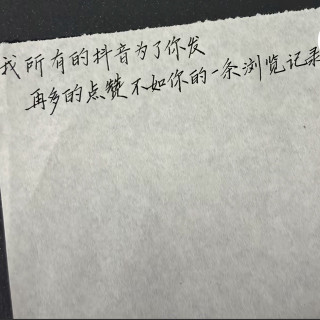 我所有的抖音为了你发
再多的点赞不如你的一条浏览记录